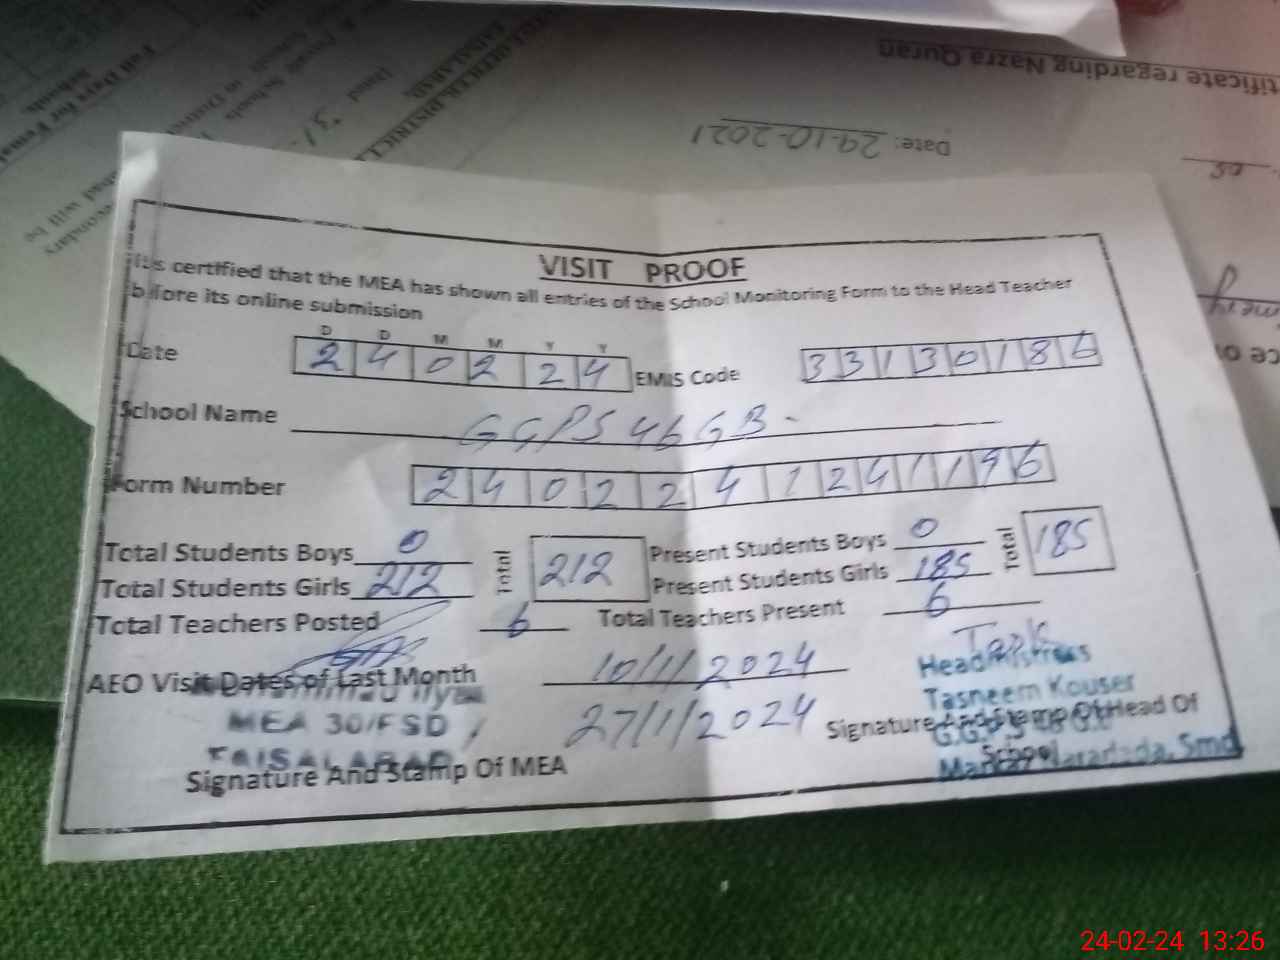 tificate regarding Nazra Quran
Date: 29-10-2021
VISIT PROOF
It is certified that the MEA has shown all entries of the School Monitoring Form to the Head Teacher
before its online submission
D D M M Y Y
Date 2 4 0 2 2 4 EMIS Code 3 3 1 3 0 1 8 6
School Name GGPS 46 GB-
Form Number 2 4 0 2 2 4 1 2 4 1 1 9 6
Total Students Boys 0 Total 212 Present Students Boys 0 Total 185
Total Students Girls 212 Present Students Girls 185
Total Teachers Posted 6 Total Teachers Present 6
AEO Visit Dates of Last Month 10/1/2024
27/1/2024
MEA 30/FSD
FAISALABAD
Signature And Stamp Of MEA
Headmistress
Tasneem Kouser
Signature And Stamp Of Head Of
School
24-02-24 13:26